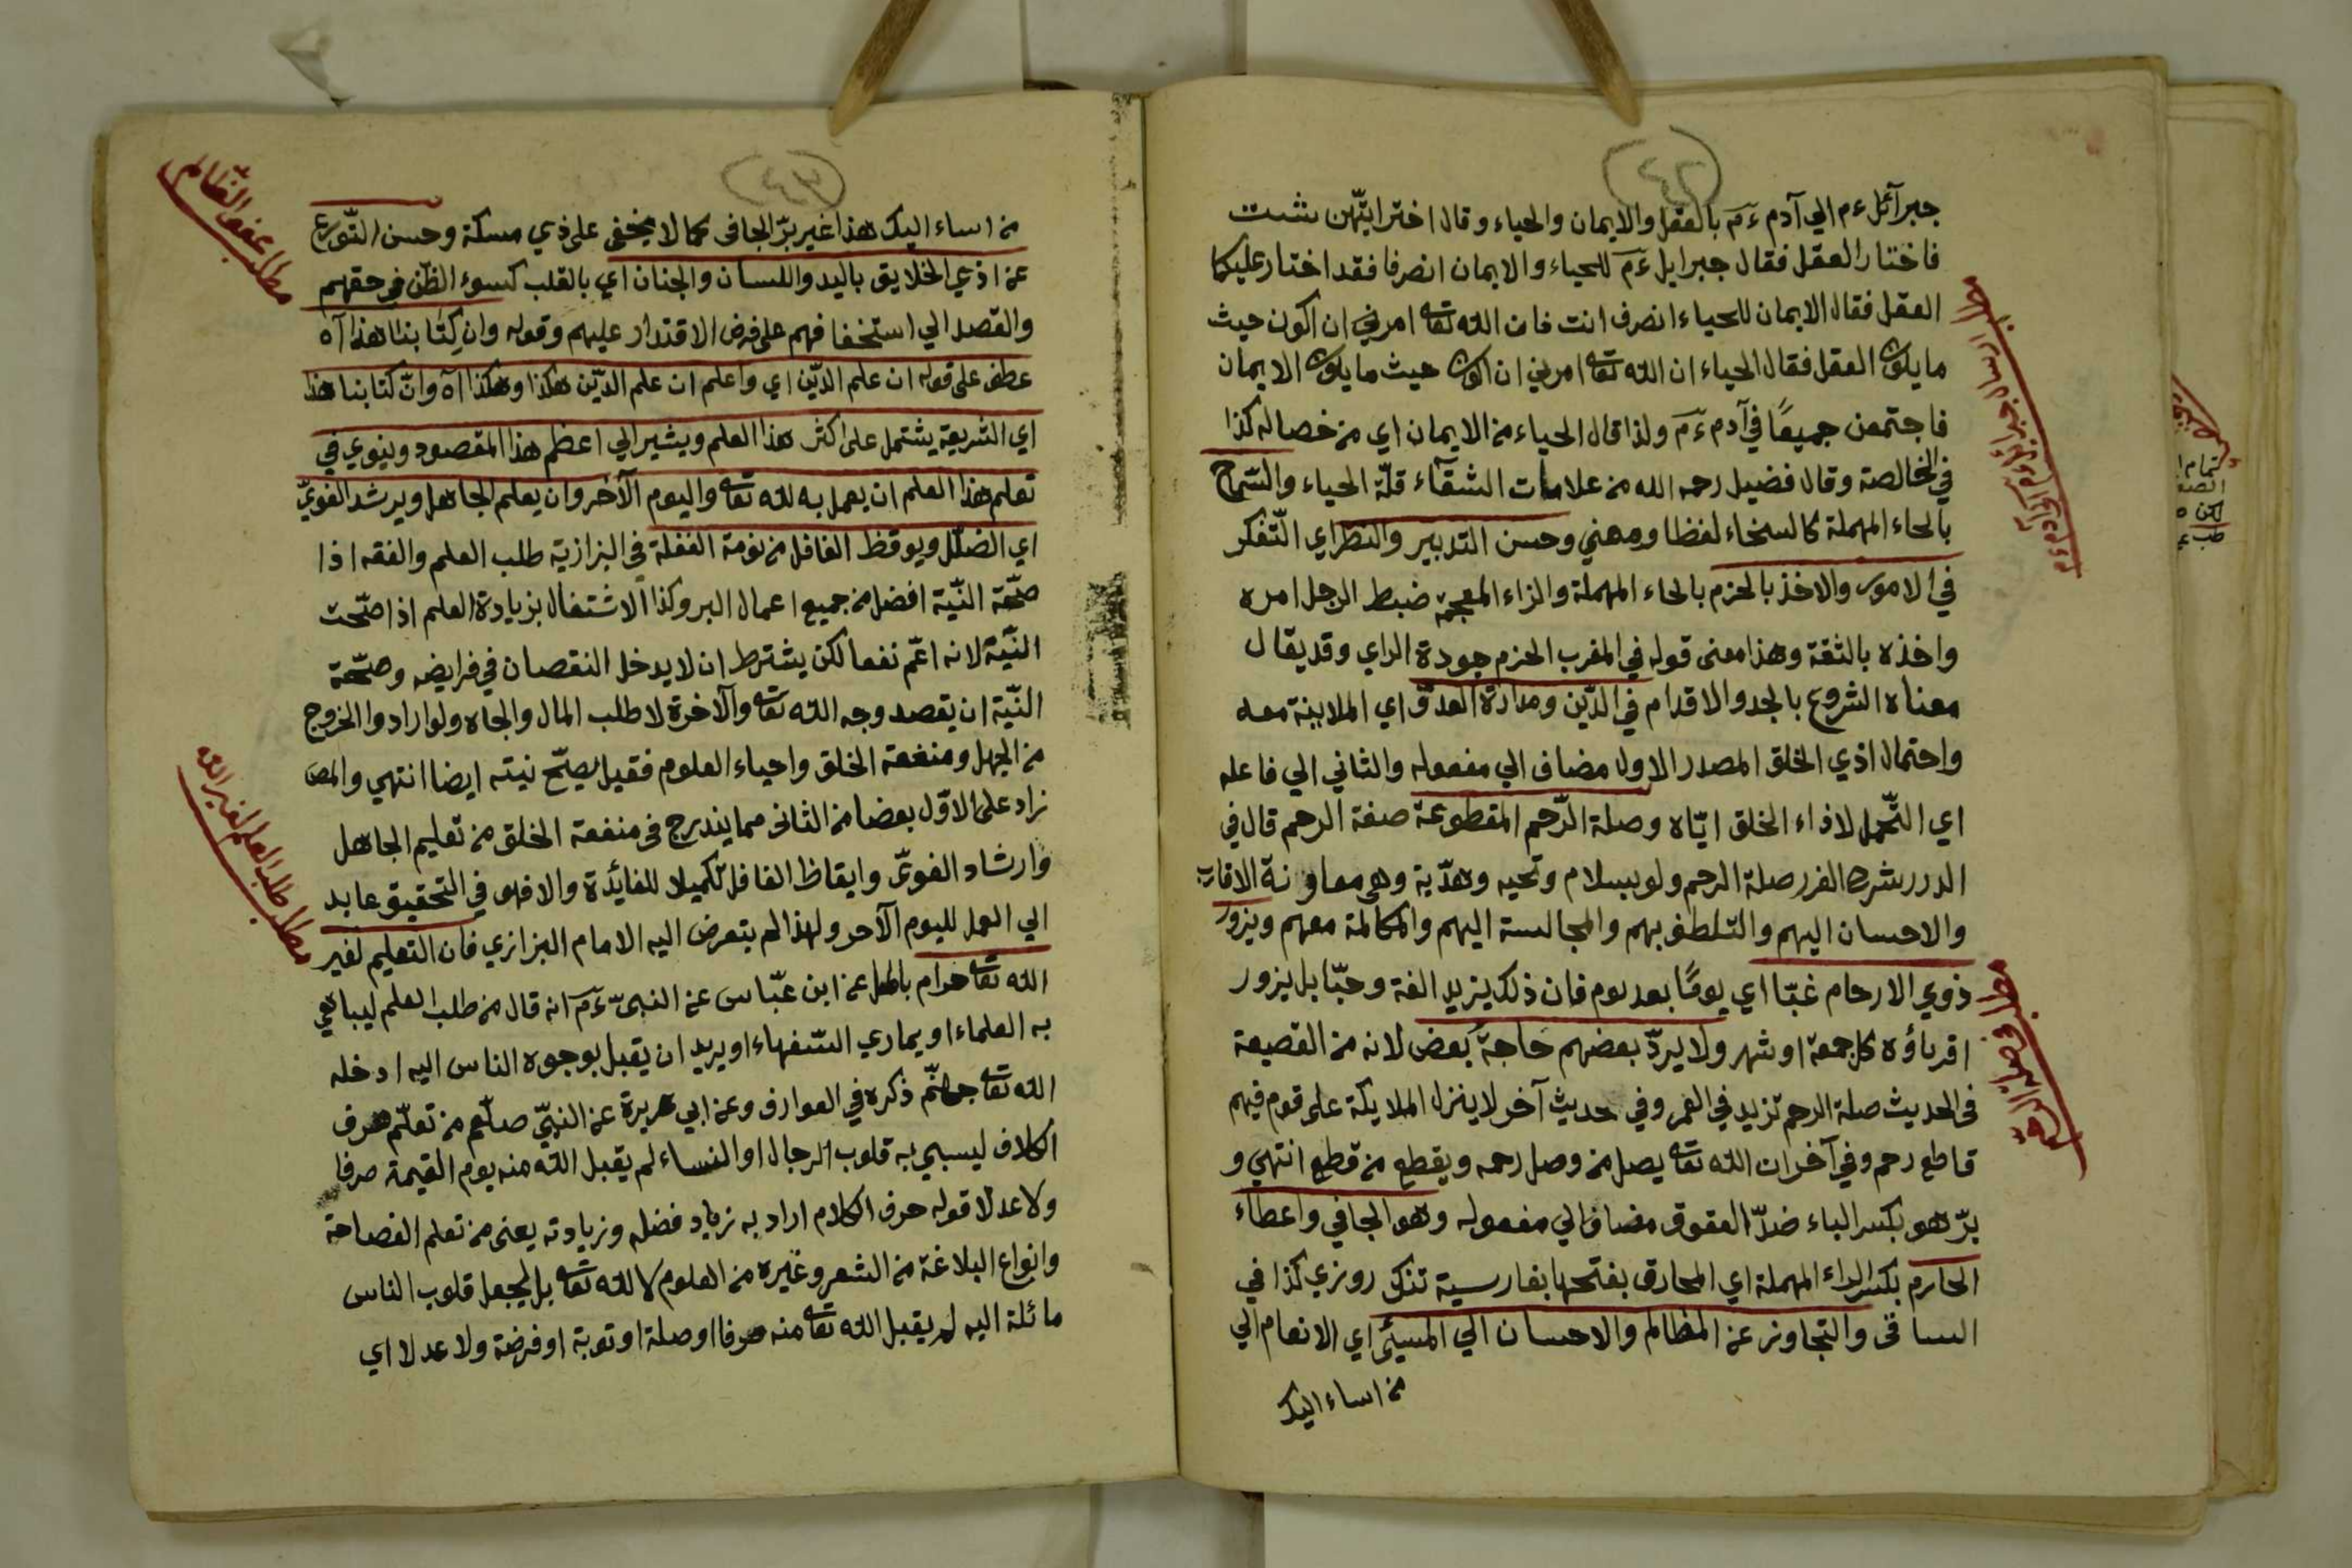 (٤٢)
جبرآئل ءم الي آدم ءم بالعقل والايمان والحياء وقال اختر ايّتهن شئت
فاختار العقل فقال جبرايل ءم للحياء والايمان انصرفا فقد اختار عليكما
العقل فقال الايمان للحياء انصرف انت فان الله تعا امرني ان اكون حيث
مايكون العقل فقال الحياء ان الله تعا امرني ان اكون حيث مايكون الايمان
فاجتمعن جميعًا في آدم ءم ولذا قال الحياء من الايمان اي من خصاله كذا
في الخالصة وقال فضيل رحمه الله من علامات الشقآء قلّة الحياء والسّماح
بالحاء المهملة كالسخاء لفظا ومعني وحسن التدبير والنظر اي التّفكر
في الامور والاخذ بالحزم بالحاء المهملة والزاء المعجمة ضبط الرجل امره
واخذه بالثقة وهذا معنى قوله في المغرب الحزم جودة الراي وقد يقال
معناه الشروع بالجد والاقدام في الدّين ومدارة العدوّ اي الملاينة معه
واحتمال اذي الخلق المصدر الاول مضاف الي مفعوله والثاني الي فاعله
اي التّحمل لاذاء الخلق ايّاه وصلة الرّحم المقطوعة صفة الرحم قال في
الدرر شرح الغرر صلة الرحم ولو بسلام وتحيه وهدّية وهي معاونة الاقارب
والاحسان اليهم والتّلطف بهم والمجالسة اليهم والمكالمة معهم ويزور
ذوي الارحام غبّا اي يومًا بعد يوم فان ذلك يزيد الفة وحبّا بل يزور
اقرباؤه كل جمعة او شهر ولا يردّ بعضهم حاجة بعض لانه من القطيعة
في الحديث صلة الرحم تزيد في العمر وفي حديث آخر لا ينزل الملايكة علي قوم فيهم
قاطع رحم وفي آخر ان الله تعا يصل من وصل رحمه ويقطع من قطع انتهي و
برّ هو بكسر الباء ضدّ العقوق مضاف الي مفعوله وهو الجافي واعطاء
الحارم بكسر الراء المهملة اي المحارف بفتحها بفارسية تنك روزي كذا في
السافى والتجاوز عن المظالم والاحسان الي المسيئ اي الانعام الي
من اساء اليك
مطلب ارسال جبرائيل
مطلب في صلة الرحم
(٤٣)
من اساء اليك هذا غير برّ الجافى كما لا يخفى على ذي مسكة وحسن التّورع
عن اذي الخلايق باليد واللسان والجنان اي بالقلب كسوء الظن في حقهم
والقصد الي استخفافهم على فرض الاقتدار عليهم وقوله وان كتابنا هذا آه
عطف على قوله ان علم الدّين اي واعلم ان علم الدّين هكذا وهكذا آه وانّ كتابنا هذا
اي الشريعة يشتمل على اكثر هذا العلم ويشير الي اعظم هذا المقصود وينوي في
تعلم هذا العلم ان يعمل به لله تعا واليوم الآخر وان يعلم الجاهل ويرشد الغويّ
اي الضّلّل ويوقظ الغافل من نومة الغفلة في البزازية طلب العلم والفقه اذا
صحّة النّية افضل من جميع اعمال البر وكذا الاشتغال بزيادة العلم اذا صحّت
النّيّة لانه اعمّ نفعا لكن يشترط ان لا يدخل النقصان في فرايضه وصحّة
النّيّة ان يقصد وجه الله تعا والآخرة لا طلب المال والجاه ولو ارادوا الخروج
من الجهل ومنفعة الخلق واحياء العلوم فقيل يصحّ نيته ايضا انتهي والمص
زاد على الاوّل بعضا من الثانى مما يندرج فى منفعة الخلق من تعليم الجاهل
وارشاد الغويّ وايقاظ الغافل تكميلا للفائدة والا فهو في التحقيق عايد
الي العمل لليوم الآخر ولهذا لم يتعرض اليه الامام البزازي فان التعليم لغير
الله تعا حرام باطل عن ابن عبّاس عن النبىّ ءم انه قال من طلب العلم ليباهي
به العلماء او يماري السّفهاء او يريد ان يقبل بوجوه الناس اليه ادخله
الله تعا جهنّم ذكره في العوارف وعن ابي هريرة عن النبيّ صلعم من تعلّم صرف
الكلاف ليسبي به قلوب الرجال او النساء لم يقبل الله منه يوم القيمة صرفا
ولا عدلا قوله صرف الكلام اراد به زياد فضله وزيادته يعنى من تعلم الفصاحة
وانواع البلاغة من الشعر وغيره من العلوم لا لله تعا بل ليجعل قلوب الناس
مائلة اليه لم يقبل الله تعا منه صرفا او صلة او توبة او فرضة ولا عدلا اي
مطلب عفو الظالم
مطلب طلب العلم لغير الله